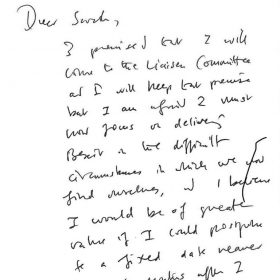 Dear Sarah,
I promised that I will
come to the Liaison Committee
and I will keep that promise
but I am afraid I must
now focus on delivering
Brexit in the difficult
circumstances in which we now
find ourselves, and I believe
I would be of greater
value if I could postpone
to a fixed date nearer
months after I